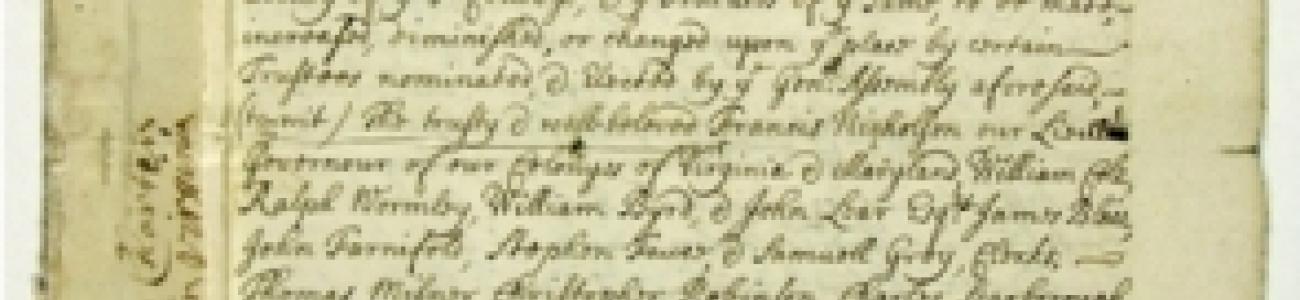 increased, diminished, or changed upon yᵉ place by certain
Trustees nominated & Elected by yᵉ Genˡˡ Assembly aforesaid,
(to wit) The trusty & well-beloved Francis Nicholson our Lieut
Governour of our Colonyes of Virginia & Maryland William Cole
Ralph Wormley, William Byrd, & John Lear Esqʳˢ James Blair
John Farnifold, Stephen Fauce, & Samuell Gray, Clerks,
Thomas Milner Christopher Robinson Charles Scarborough
Charter